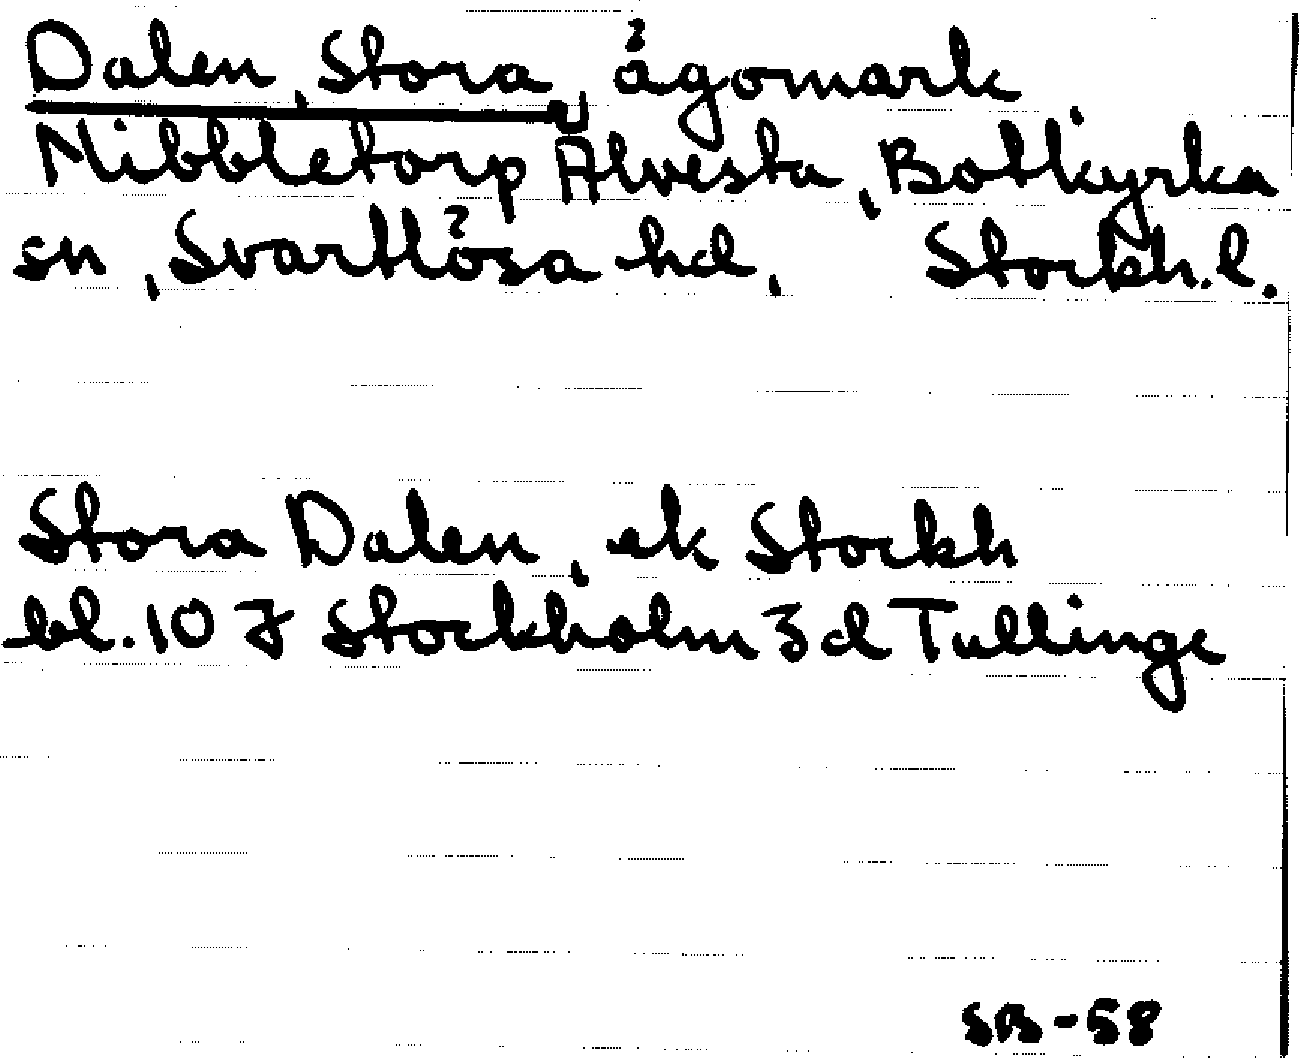 Dalen, Stora, ägomark
Nibbletorp Alvesta, Botkyrka
sn, Svartlösa hd, Stockh.l.
Stora Dalen, ek Stockh
bl. 10 J Stockholm 3 d Tullinge
SB-58